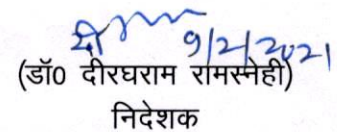 दी 9/2/2021
(डॉ0 दीरघराम रामस्नेही)
निदेशक